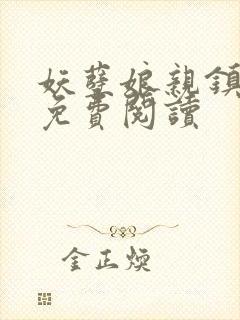 妖孽娘親鎮
免費閱讀
金正煥